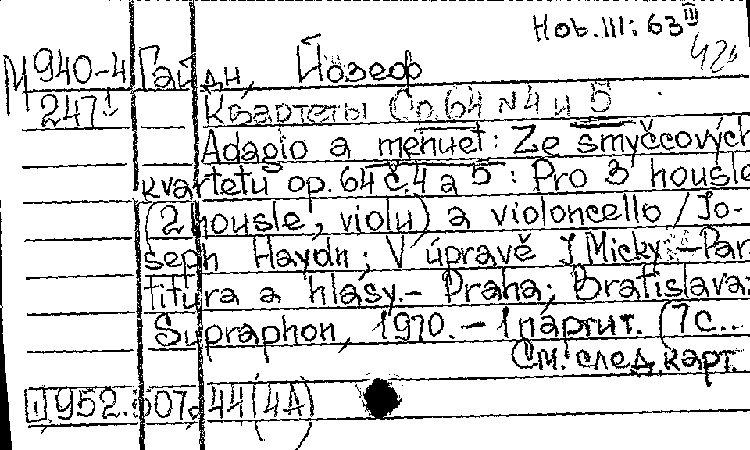 Hob. III: 63 III
42а
М 940-4 Гайдн, Йозеф
2471 Квартеты Ор. 64 N 4 и 5
Adagio a menuet: Ze smyčcových
kvartetů op. 64 č. 4 a 5: Pro 3 housle
(2 housle, violu) a violoncello / Jo-
seph Haydn; V úpravě J. Micky. - Par-
titura a hlasy. - Praha; Bratislava:
Supraphon, 1970. - 1 парит. (7 с...
См. след. карт.
1 952.507. 44 (4А)